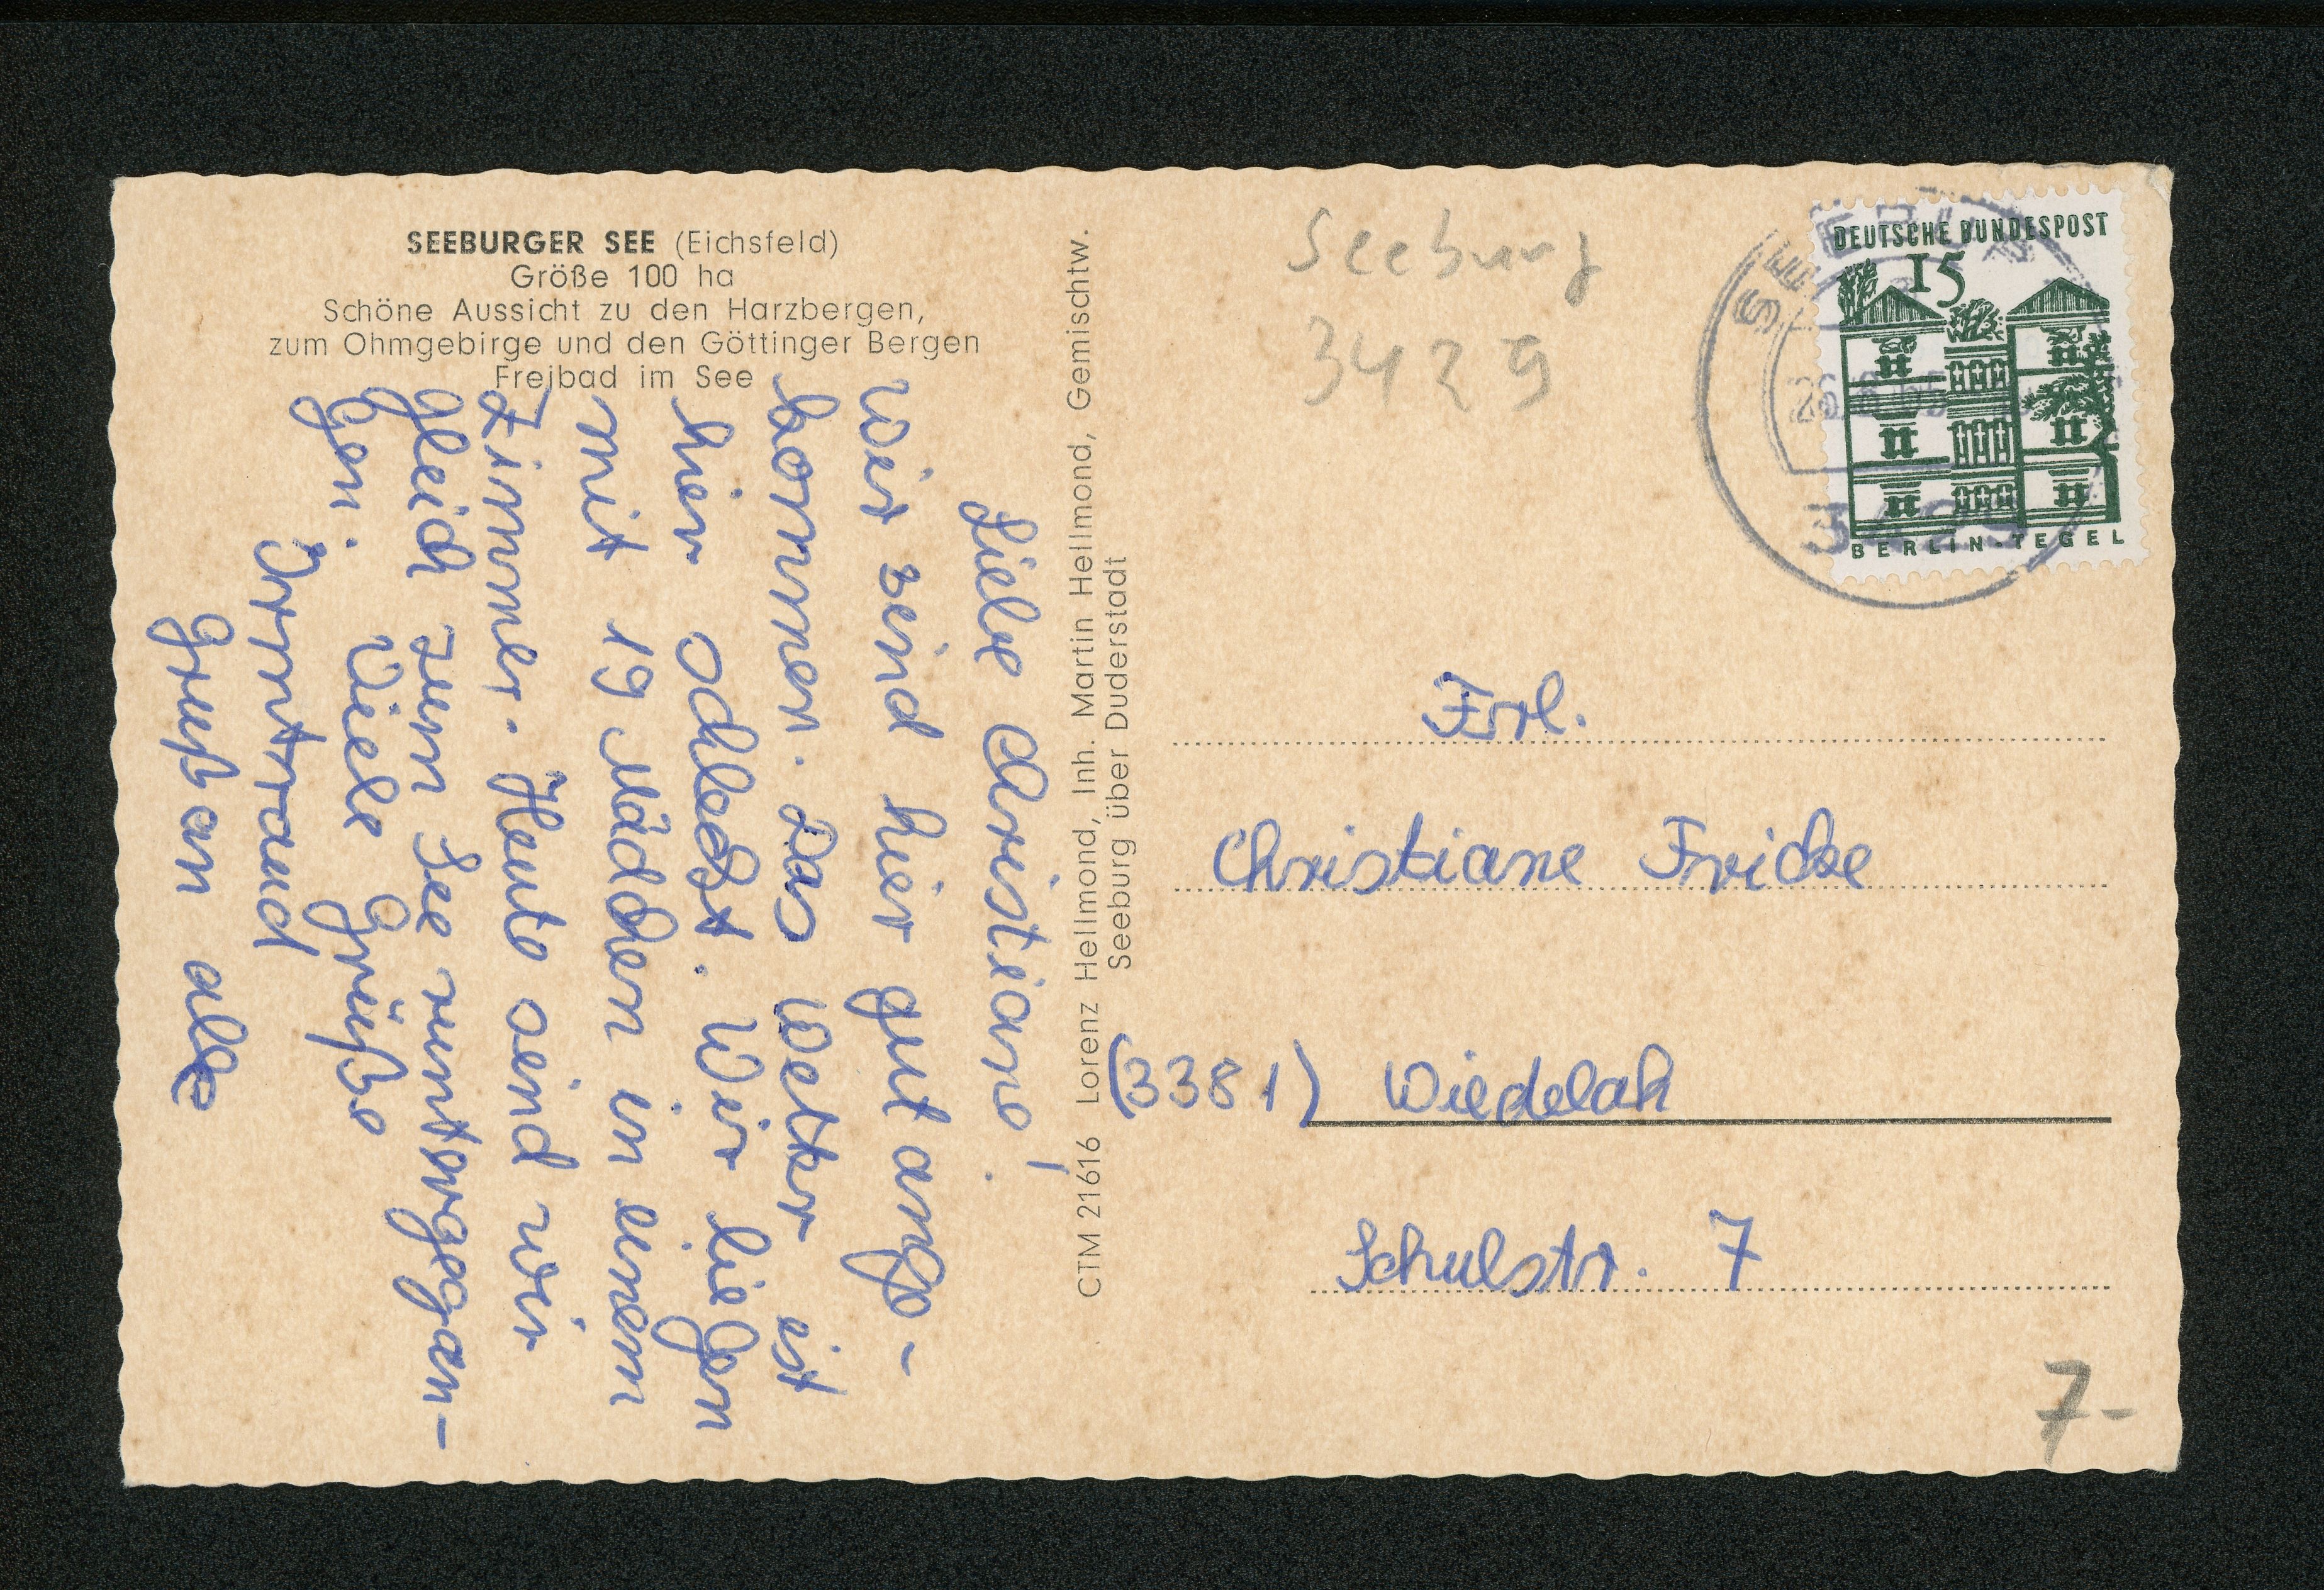 SEEBURGER SEE (Eichsfeld)
Größe 100 ha
Schöne Aussicht zu den Harzbergen,
zum Ohmgebirge und den Göttinger Bergen
Freibad im See
Liebe Christiane!
Wir sind hier gut ange-
kommen. Das Wetter ist
hier schlecht. Wir liegen
mit 19 Mädchen in einem
Zimmer. Heute sind wir
gleich zum See runtergegan-
gen. Viele Grüße
Irmtraud
Gruß an alle
CTM 21616 Lorenz Hellmond, Inh. Martin Hellmond, Gemischtw.
Seeburg über Duderstadt
Seeburg
3429
DEUTSCHE BUNDESPOST
15
BERLIN-TEGEL
Frl.
Christiane Fricke
(3381) Wiedelah
Schulstr. 7
7-